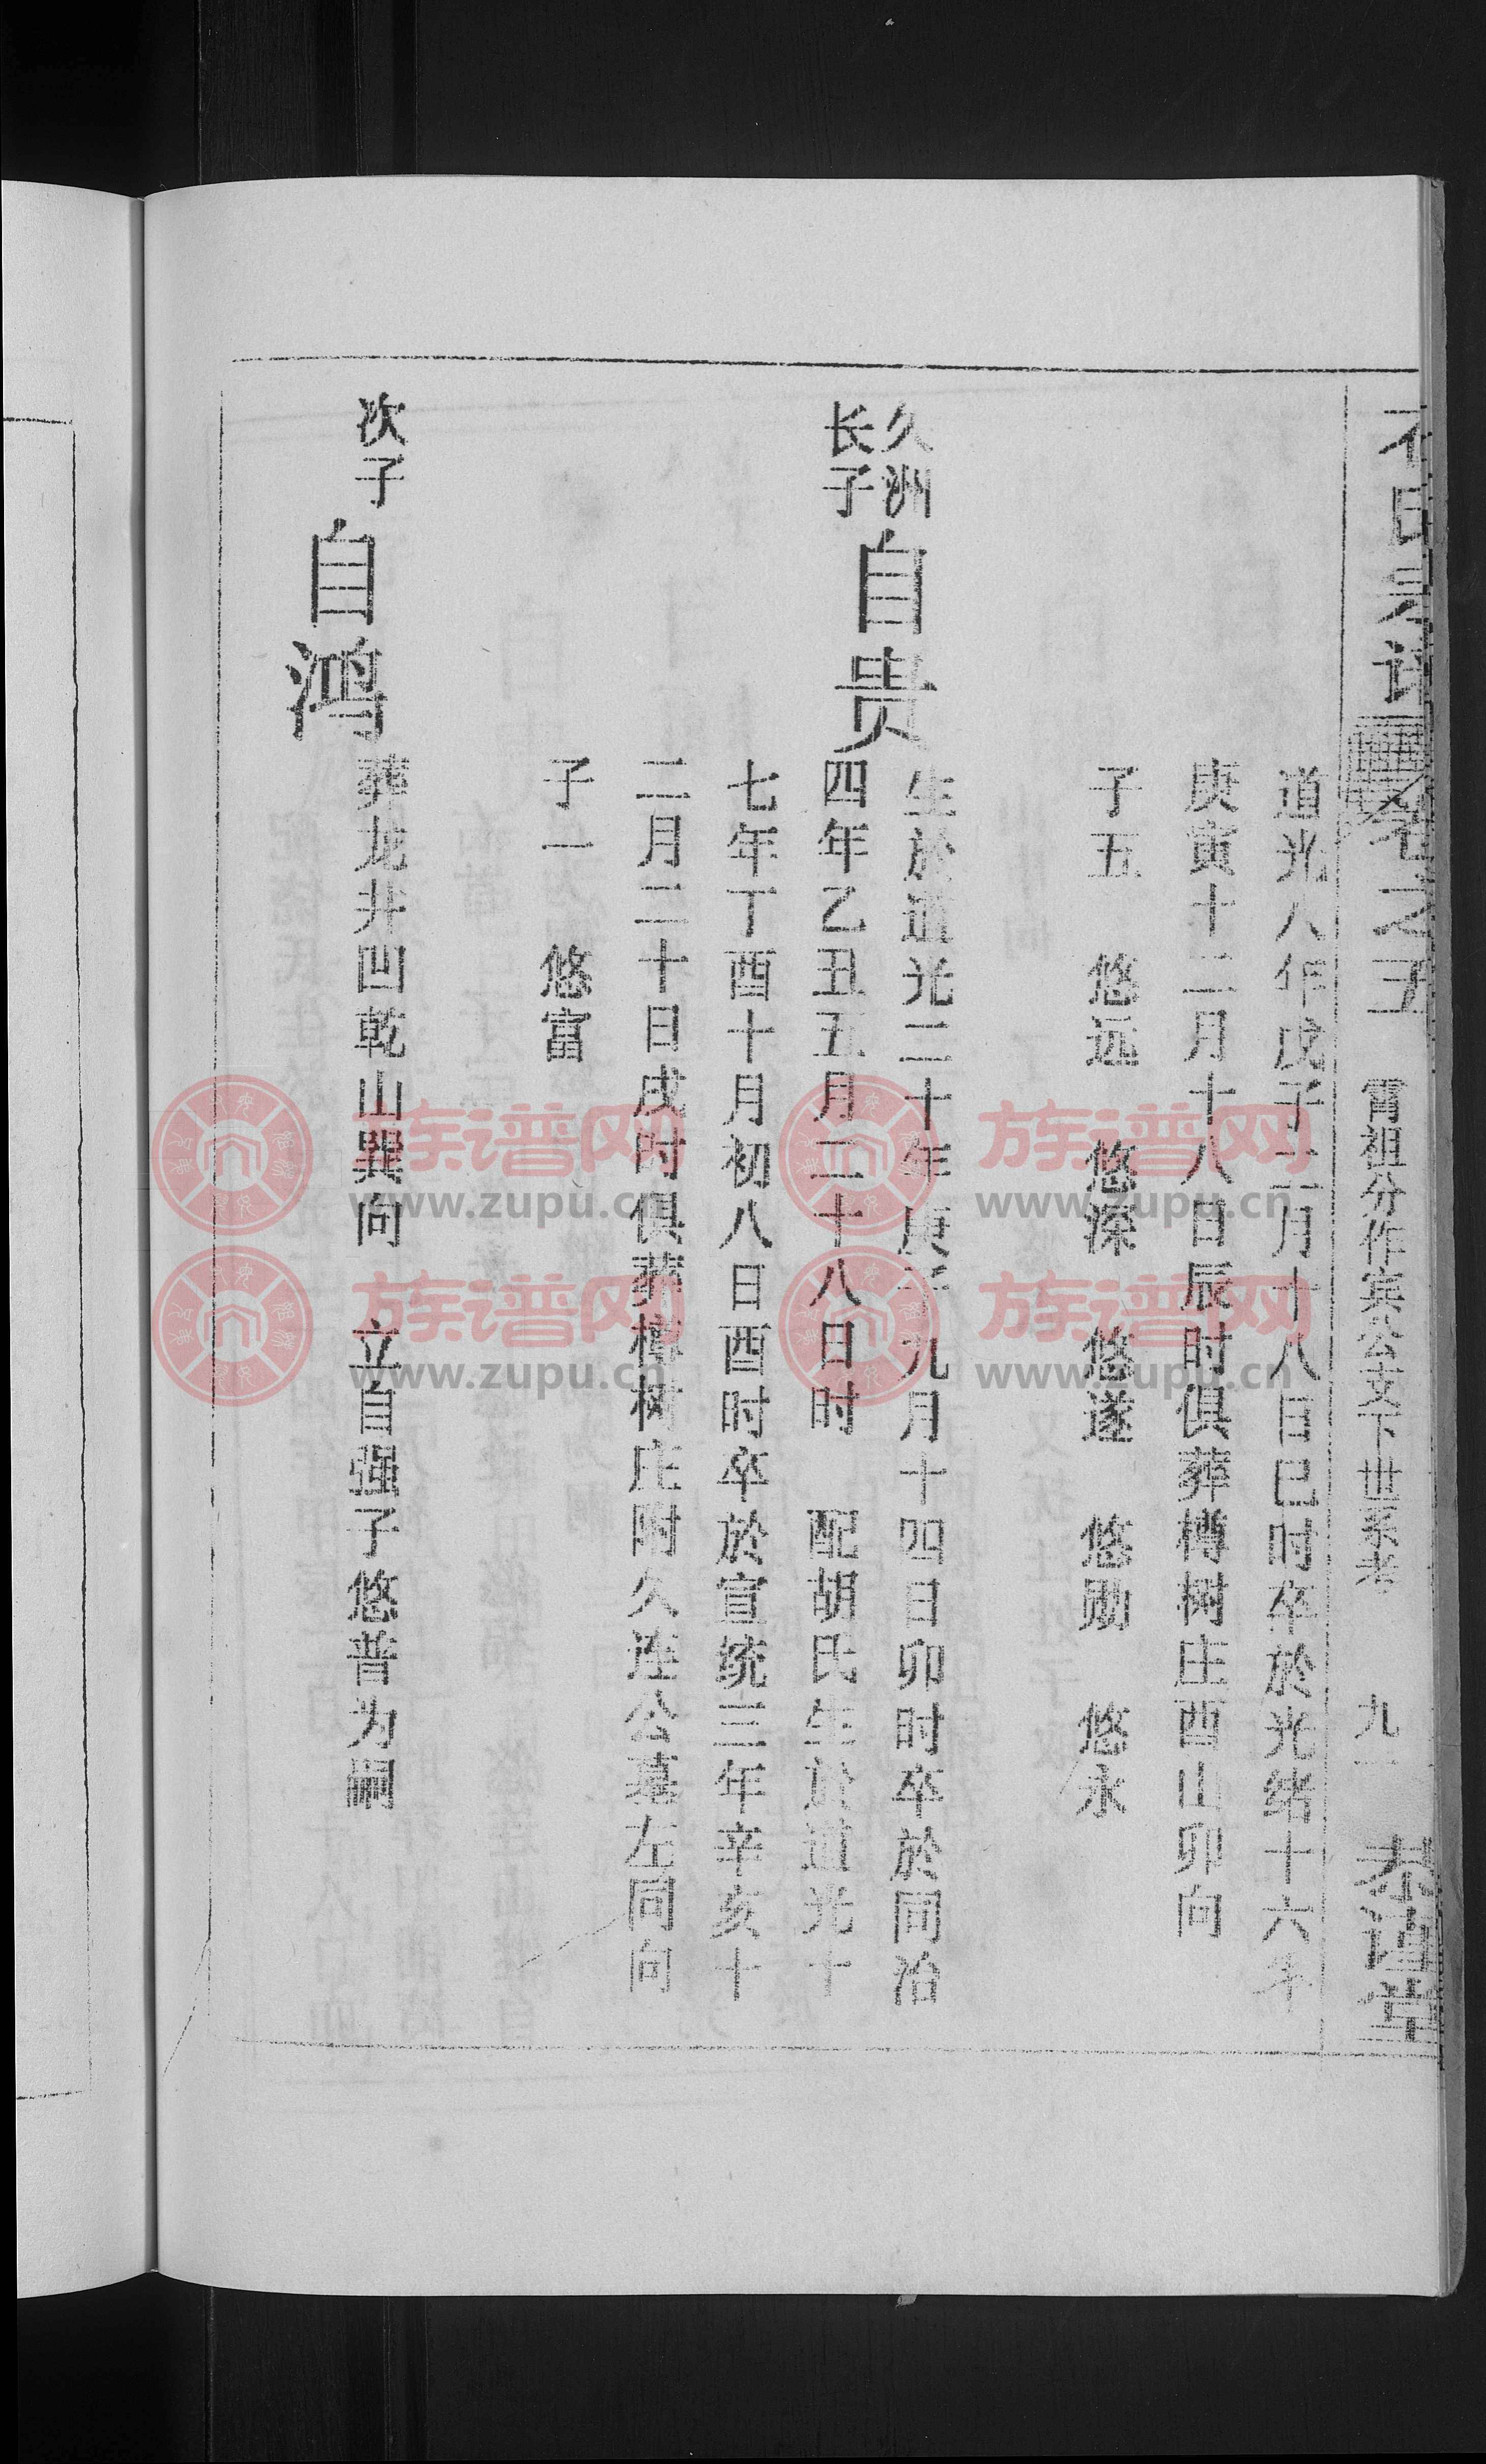 卷之五 霄祖分作宾公支下世系考 九一 恭谨堂
道光八年戊子十一月十八日巳时卒於光绪十六年
庚寅十二月十八日辰时俱葬樟树庄酉山卯向
子五 悠远 悠深 悠遂 悠勋 悠永
久洲
长子
自贵
生於道光二十年庚子九月十四日卯时卒於同治
四年乙丑五月二十八日时 配胡氏生於道光十
七年丁酉十月初八日酉时卒於宣统三年辛亥十
二月二十日戌时俱葬樟树庄附久连公墓左同向
子一 悠富
次子
自鸿
葬龙井凹乾山巽向 立自强子悠普为嗣
族谱网
www.zupu.cn
族谱网
www.zupu.cn
族谱网
www.zupu.cn
族谱网
www.zupu.cn